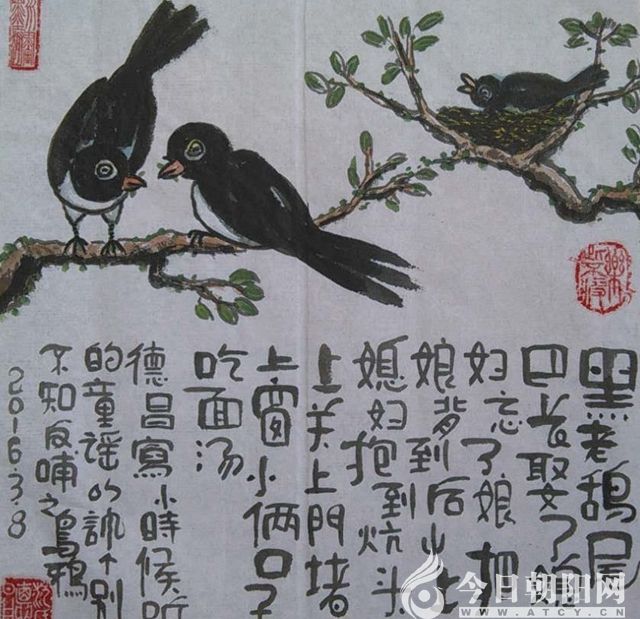 黑老鸹尾
巴长娶了媳
妇忘了娘把
娘背到后山上
媳妇抱到炕头
上关上門堵
上窗小俩口子
吃面汤
德昌寫小時候听
的童谣以个别
不知反哺之鳥鸦
2016.3.8
今日朝阳网
WWW.ATCY.CN